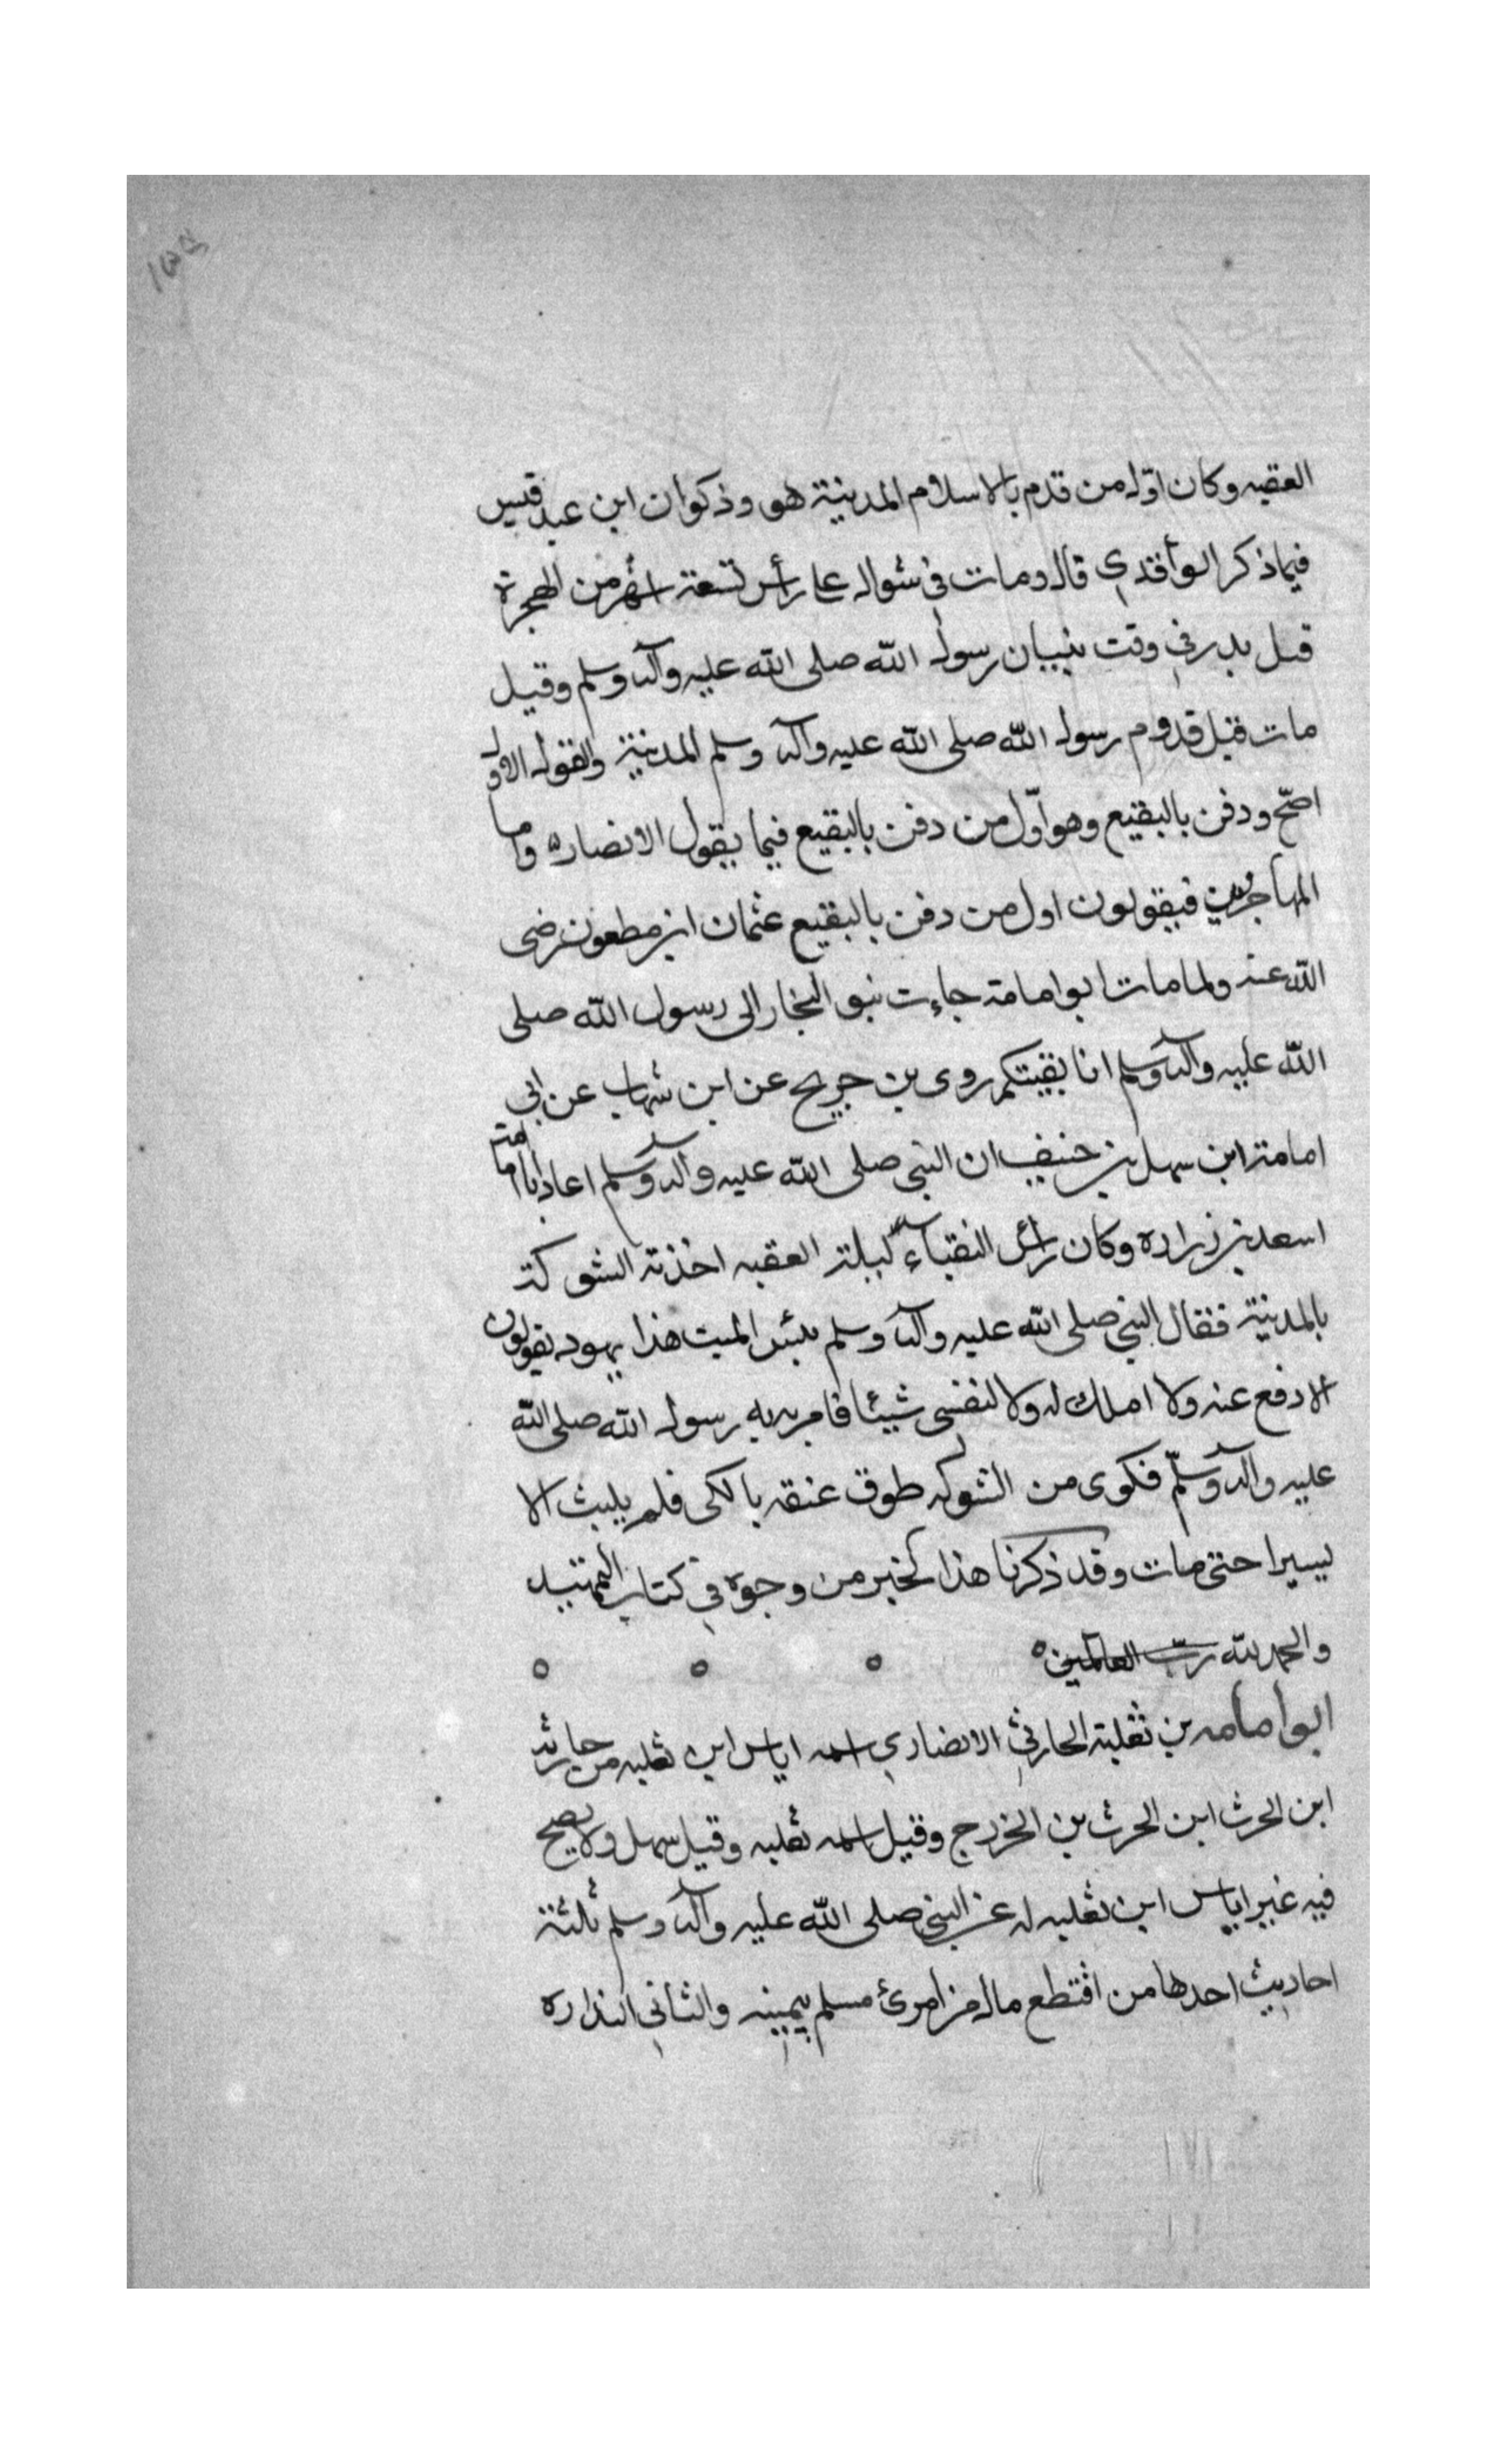 العقبه وكان اول من قدم بالاسلام المدينة هو وذكوان ابن عبد قيس
فيما ذكر الواقدي قال ومات في شوال على رأس تسعة اشهر من الهجرة
قبل بدر في وقت بنيان رسول الله صلى الله عليه وآله وسلم وقيل
مات قبل قدوم رسول الله صلى الله عليه وآله وسلم المدينة والقول الاول
اصحّ ودفن بالبقيع وهو اوّل من دفن بالبقيع فيما يقول الانصار واما
المهاجرين فيقولون اول من دفن بالبقيع عثمان ابن مطعون رضى
الله عنه ولما مات ابو امامة جاءت بنو النجار الى رسول الله صلى
الله عليه وآله وسلم انا نقيبكم روى بن جريح عن ابن شهاب عن ابي
امامة ابن سهل بن حنيف ان النبي صلى الله عليه وآله وسلم اعاد ابا امامة
اسعد بن زراره وكان رأس النقباء ليلة العقبه اخذته الشوكة
بالمدينة فقال النبي صلى الله عليه وآله وسلم بئس الميت هذا يهود يقولون
الا دفع عنه ولا املك له ولا لنفسي شيئا فامر به رسول الله صلى الله
عليه وآله وسلّم فكوى من الشوكه طوق عنقه بالكى فلم يلبث الا
يسيرا حتى مات وقد ذكرنا هذا الخبر من وجوه في كتاب التمهيد
والحمد لله ربّ العالمين ه ه ه ه
ابو امامه بن ثعلبة الحارثي الانصاري اسمه اياس ابن ثعلبه من حارثه
ابن الحرث ابن الحرث بن الخزرج وقيل اسمه ثعلبه وقيل سهل ولا يصح
فيه غير اياس ابن ثعلبه له عن النبي صلى الله عليه وآله وسلم ثلثة
احاديث احدها من اقتطع مال من امرئ مسلم بيمينه والثاني البذاره